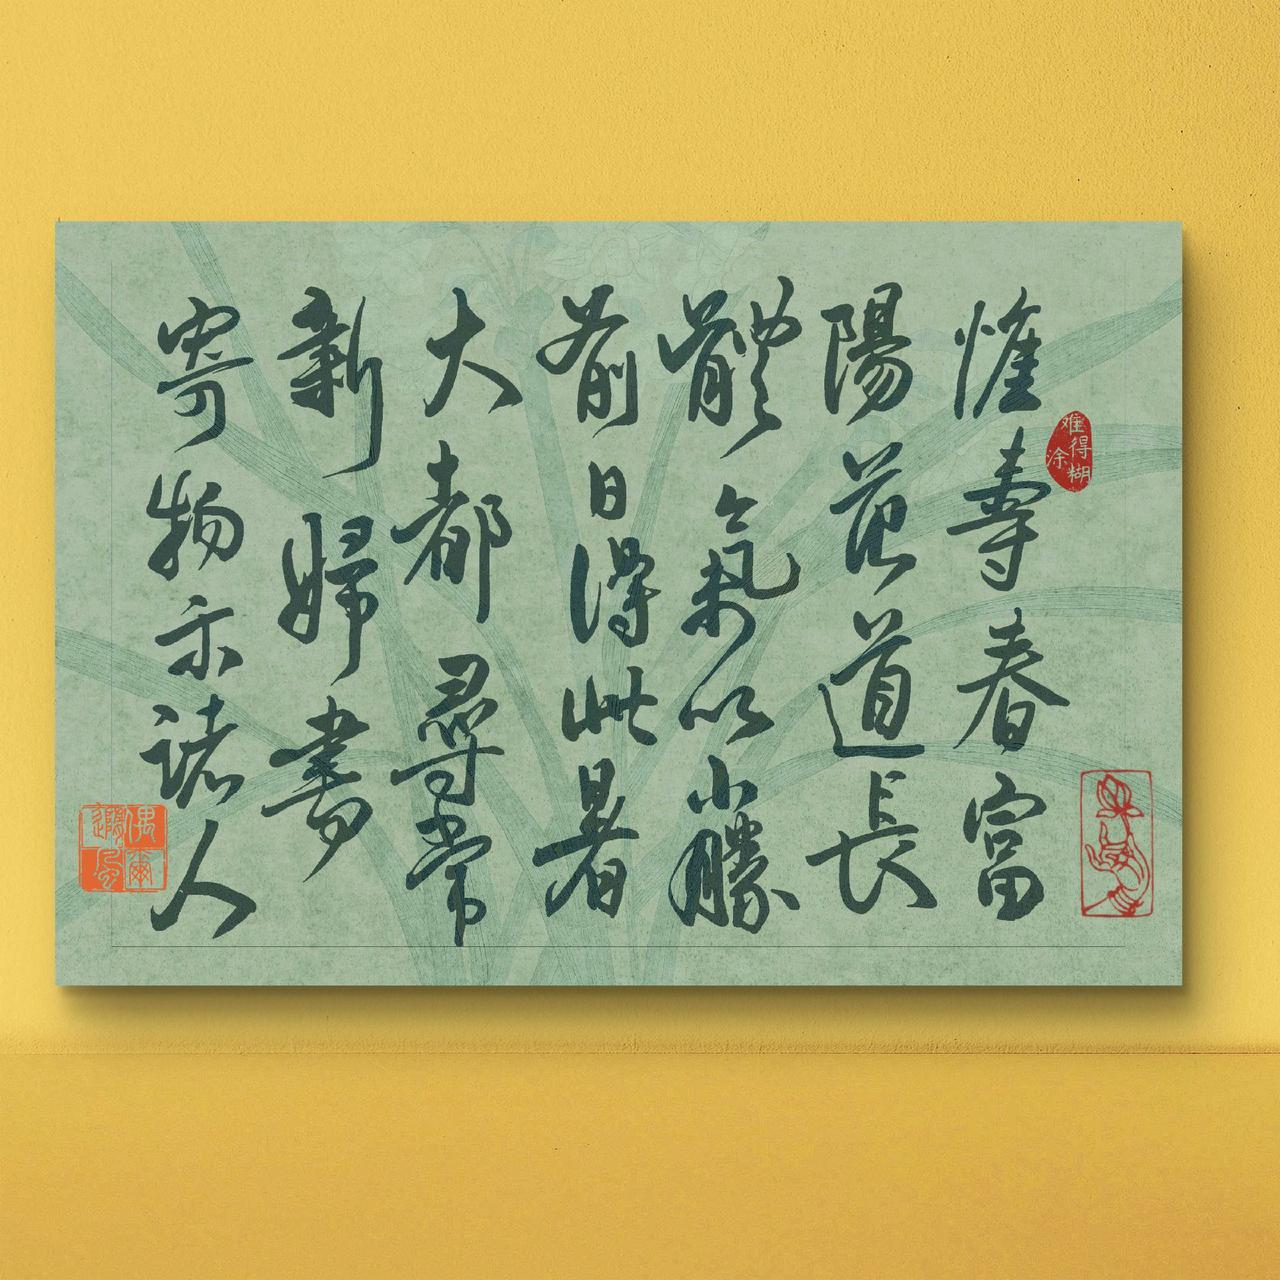 惟壽春富
陽范道長
體氣以小勝
前日得此暑
大都尋常
新婦書
寄物示諸人
难得糊涂
偶爾